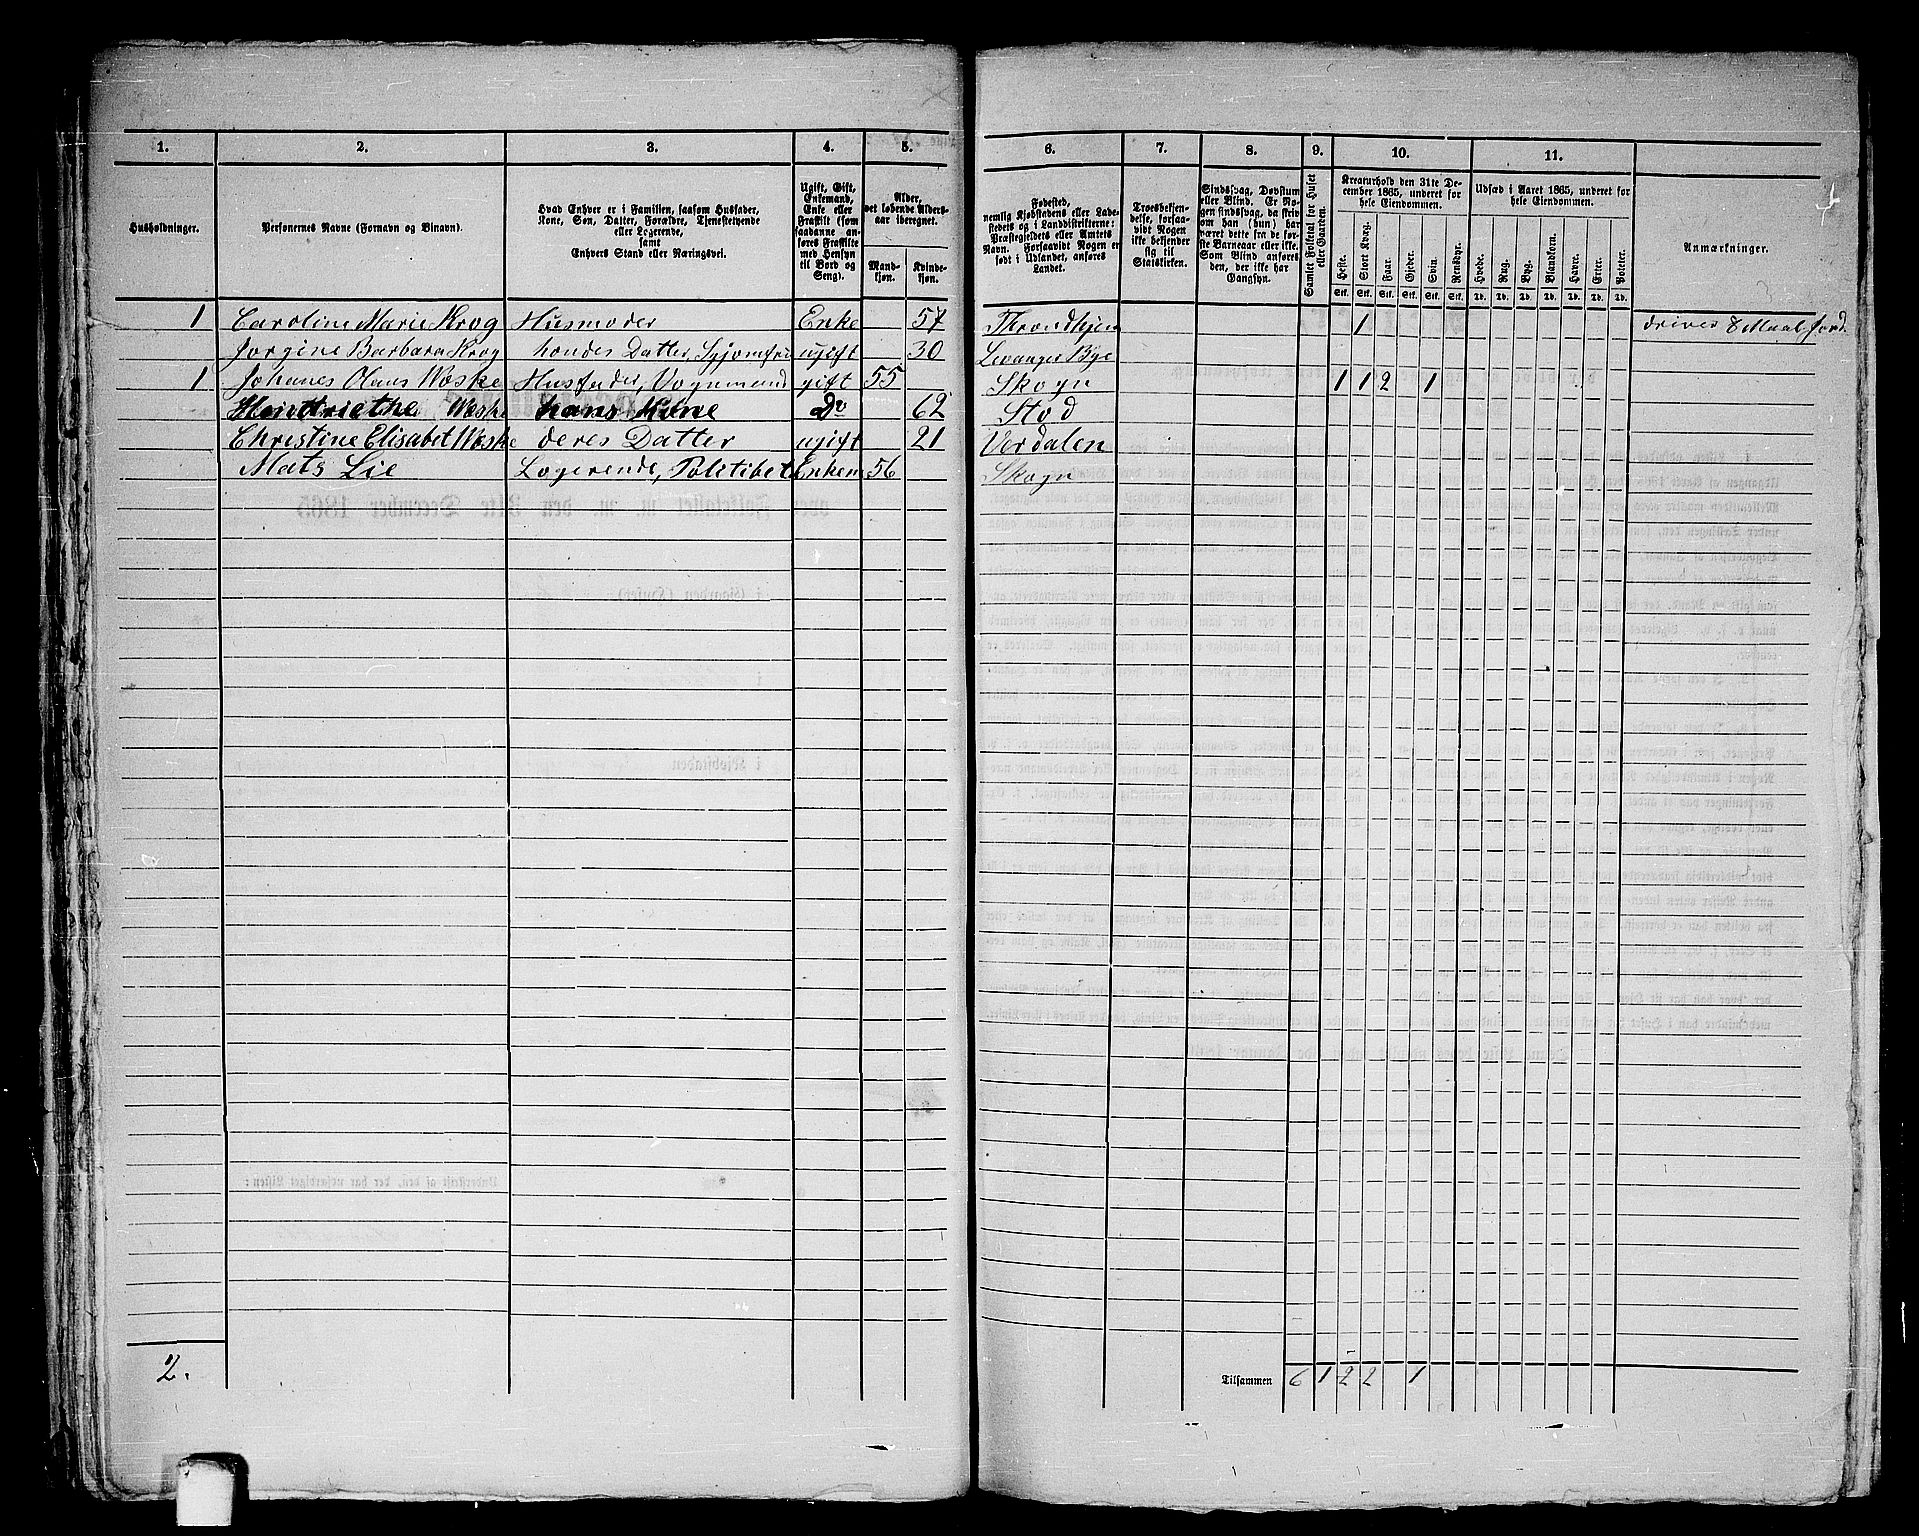 1. 2. 3. 4. 5. 6. 7. 8. 9. 10. 11.
Husholdninger.
Personernes Navne (Fornavn og Binavn).
Hvad Enhver er i Familien, saasom Husfader,
Kone, Søn, Datter, Forældre, Tjenestetyende
eller Logerende,
samt
Enhvers Stand eller Næringsvei.
Ugift, Gift,
Enkemand,
Enke eller
Fraskilt (som
saadanne an-
føres Fraskilte
med Hensyn
til Bord og
Seng).
Alder,
det løbende Alders-
aar iberegnet.
Mand-
kjøn.
Kvinde-
kjøn.
Fødested,
nemlig Kjøbstadens eller Lade-
stedets og i Landdistrikterne:
Præstegjeldets eller Amtets
Navn. Forsaavidt Nogen er
født i Udlandet, anføres
Landet.
Troesbekjen-
delse, forsaa-
vidt Nogen
ikke bekjender
sig til
Statskirken.
Sindssvag, Døvstum
eller Blind. Er No-
gen sindssvag, da skriv
om han (hun) har
været dette fra de før-
ste Barneaar eller ikke.
Som Blind anføres
den, der ikke har
Gangsyn.
Samlet Folketal for Huset
eller Gaarden.
Kreaturhold den 31te De-
cember 1865, underet for
hele Eiendommen.
Heste. Stort Kvæg. Faar. Gjeder. Svin. Rensdyr.
Stk. Stk. Stk. Stk. Stk. Stk.
Udsæd i Aaret 1865, underet for
hele Eiendommen.
Hvede. Rug. Byg. Blandkorn. Havre. Erter. Poteter.
Td. Td. Td. Td. Td. Td. Td.
Anmærkninger.
1 Caroline Marie Krog Husmoder Enke 57 Throndhjem 1 drives 8 Maal Jord
Jorgine Barbara Krog hendes Datter, Syjomfru ugift 30 Levanger Bye
1 Johanes Olaus Wæske Husfader, Vognmand gift 55 Skogn 1 1 2 1
Henttriethe Wæske hans Kone Do 62 Stod
Christine Elisabet Wæske deres Datter ugift 21 Verdalen
Mats Lie Logerende, Politibet Enkem 56 Skogn
2.
Tilsammen 6 1 2 2 1